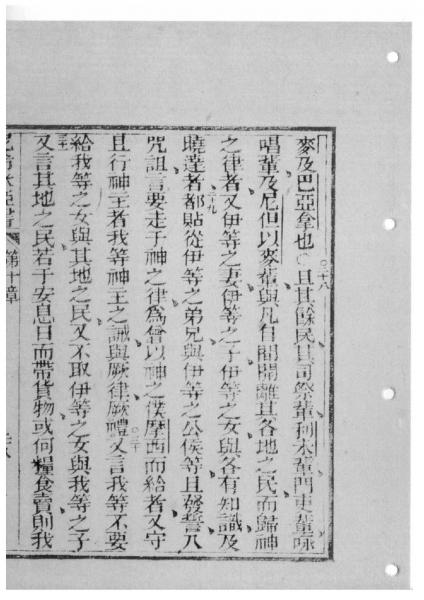 麥及巴亞拿也○二十八且其餘民其司祭輩利未輩門吏輩咏
唱輩及尼但以麥輩與凡自間開離其各地之民而歸神
之律者又伊等之妻伊等之子伊等之女與各有知識及
曉達者二十九都貼從伊等之弟兄與伊等之公侯等且發誓入
咒詛言要走于神之律爲曾以神之僕摩西而給者又守
且行神主者我等神主之誡與厥律厥禮○三十又言我等不要
給我等之女與其地之民又不取伊等之女與我等之子
三十一又言其地之民若于安息日而帶貨物或何糧食賣則我
第十章